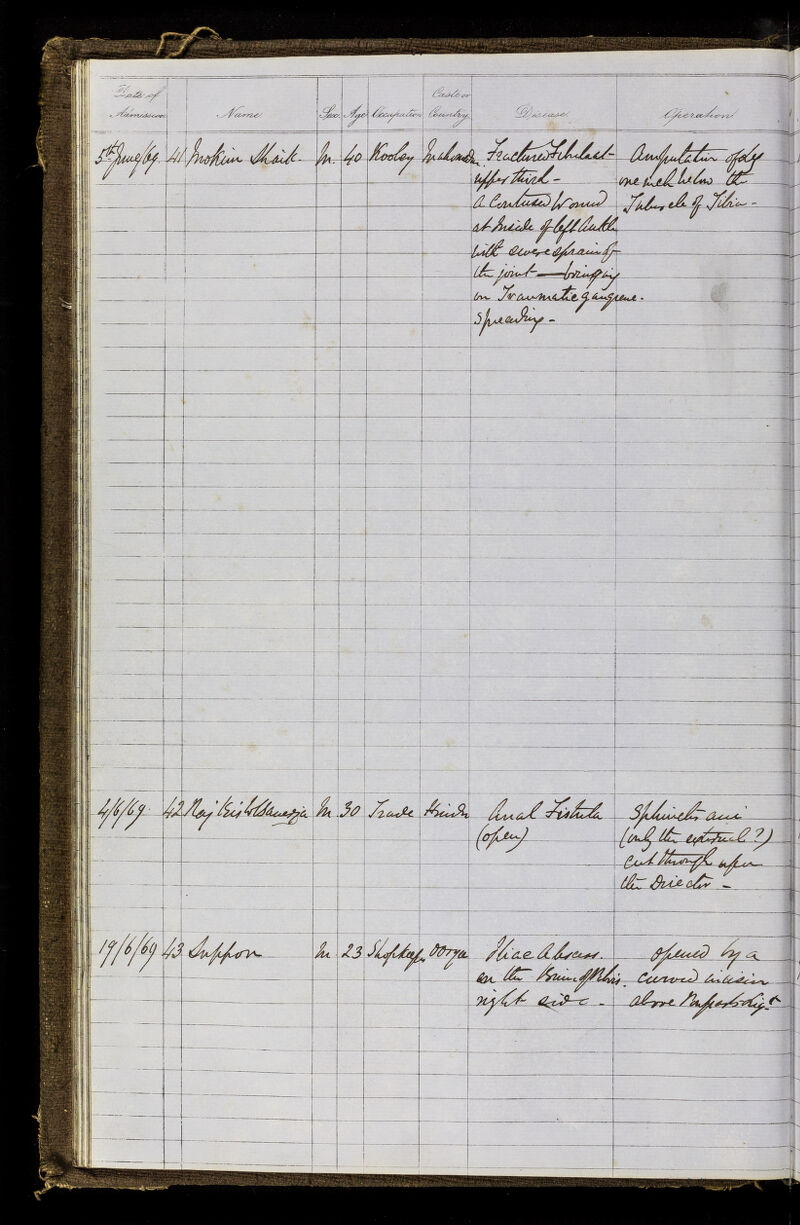 Date of Admission Name Sex Age Occupation Caste or Country Disease Operation
5th June/69 41 Mokim Shaik - M. 40 Kooley Mahomedn. Fractured Fibula at Amputation of leg
upper third - one inch below the
a Contused Wound Tubercle of Tibia -
at inside of left Ankle
with severe sprain of
the joint — bringing
on Traumatic gangrene.
Spreading -
4/6/69 42 Raj Kristo M 30 Trade Hindu Anal Fistula Sphincter ani
(open) (only the external ?)
cut through upon
the Director -
19/6/69 43 Suppon M 23 Shopkeepr Oorya Iliac Abscess. opened by a
on the Brim of Pelvis. curved incision
right side - above Poupart's Ligt